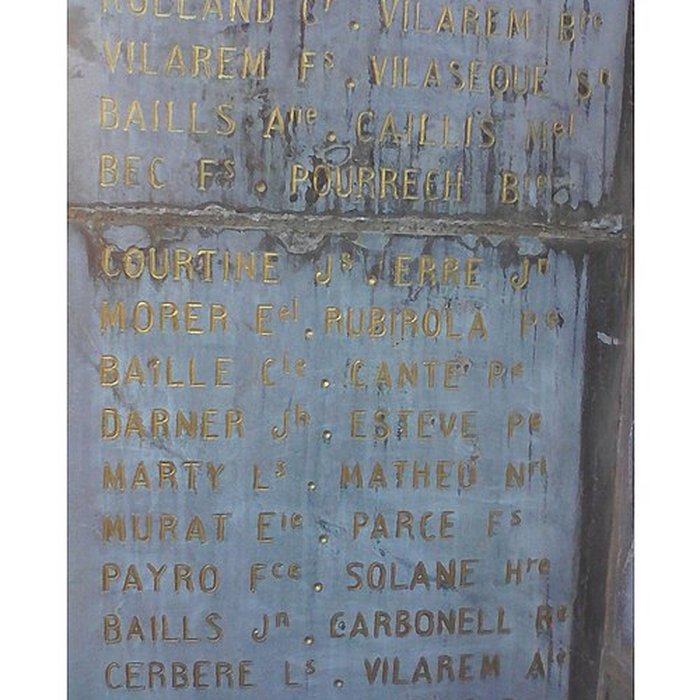 HOLLAND Cᵗ. VILAREM Bʳᵉ
VILAREM Fˢ. VILASEQUE Sⁿ
BAILLS Aⁿᵉ. CAILLIS Mᵉˡ
BEC Fˢ. POURRECH Bᵗᵉ
COURTINE Jˢ. ERRE Jⁿ
MORER Eᵉˡ. RUBIROLA Pᵉ
BAILLE Cˡᵉ. CANTE Rᵉ
DARNER Jʰ. ESTEVE Pᵉ
MARTY Lˢ. MATHEU Nʳˡ
MURAT Eⁱᵉ. PARCE Fˢ
PAYRO Fᶜᵉ. SOLANE Hʳᵉ
BAILLS Jⁿ. CARBONELL Rᵉ
CERBERE Lˢ. VILAREM